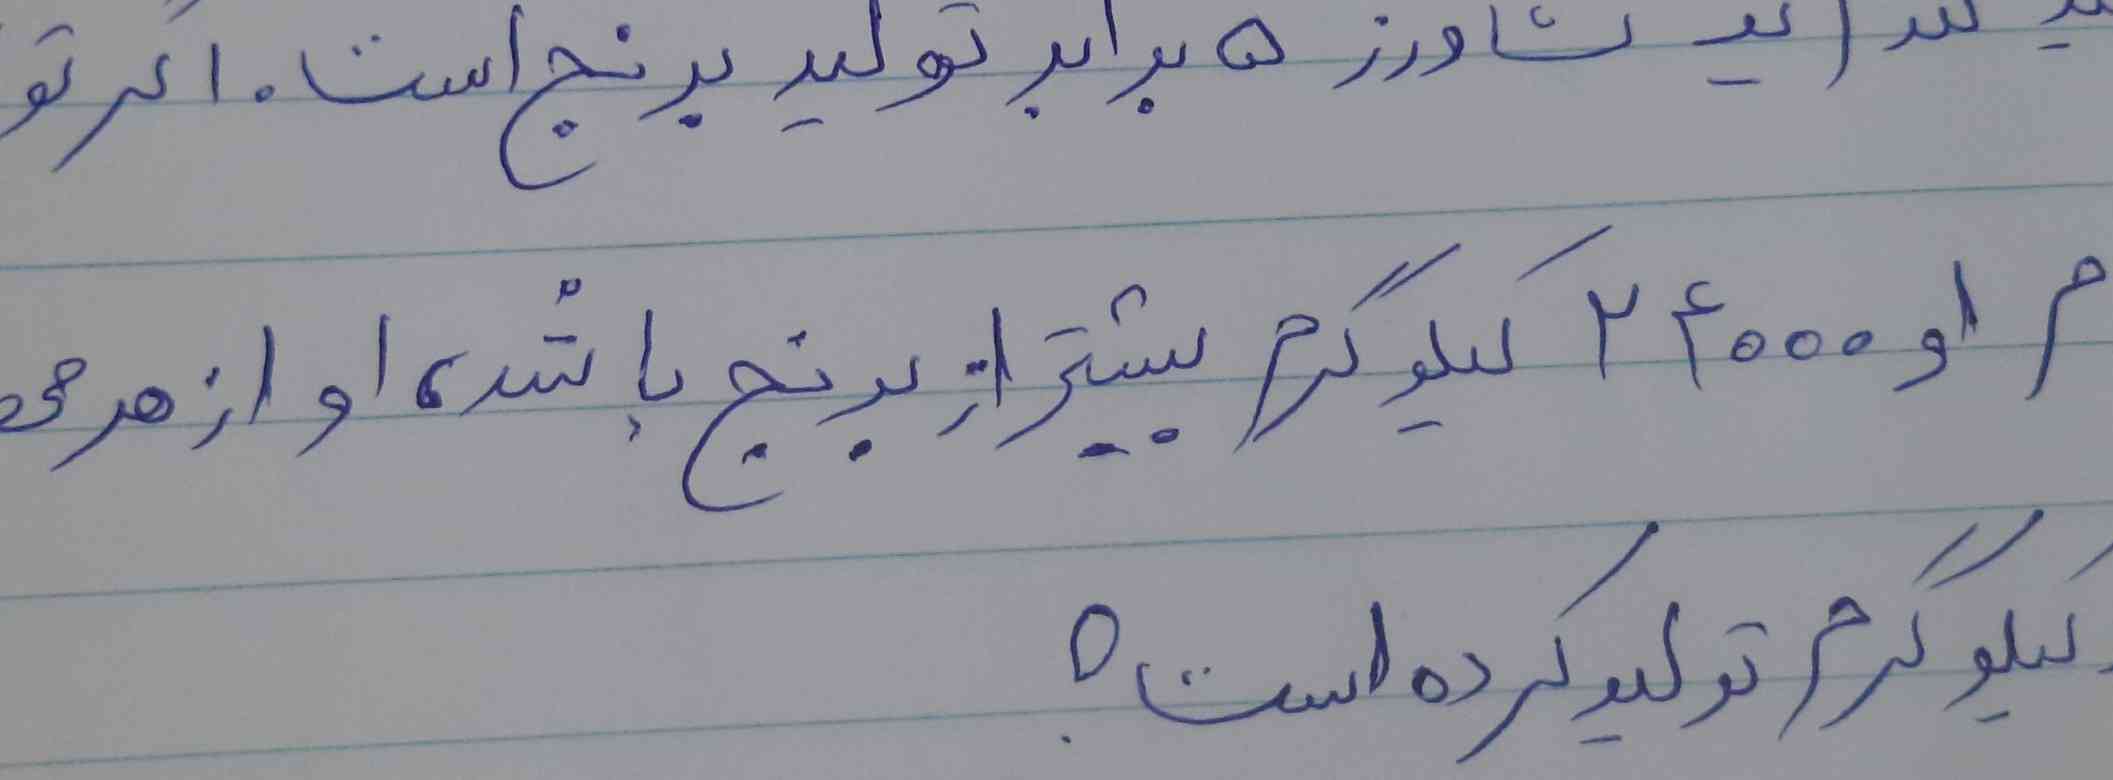 کشاورز ۵ برابر تولید برنج است. اگر تو
م او ۲۴۰۰۰ کیلوگرم بیشتر از برنج باشد، او از هر
کیلوگرم تولید کرده است؟